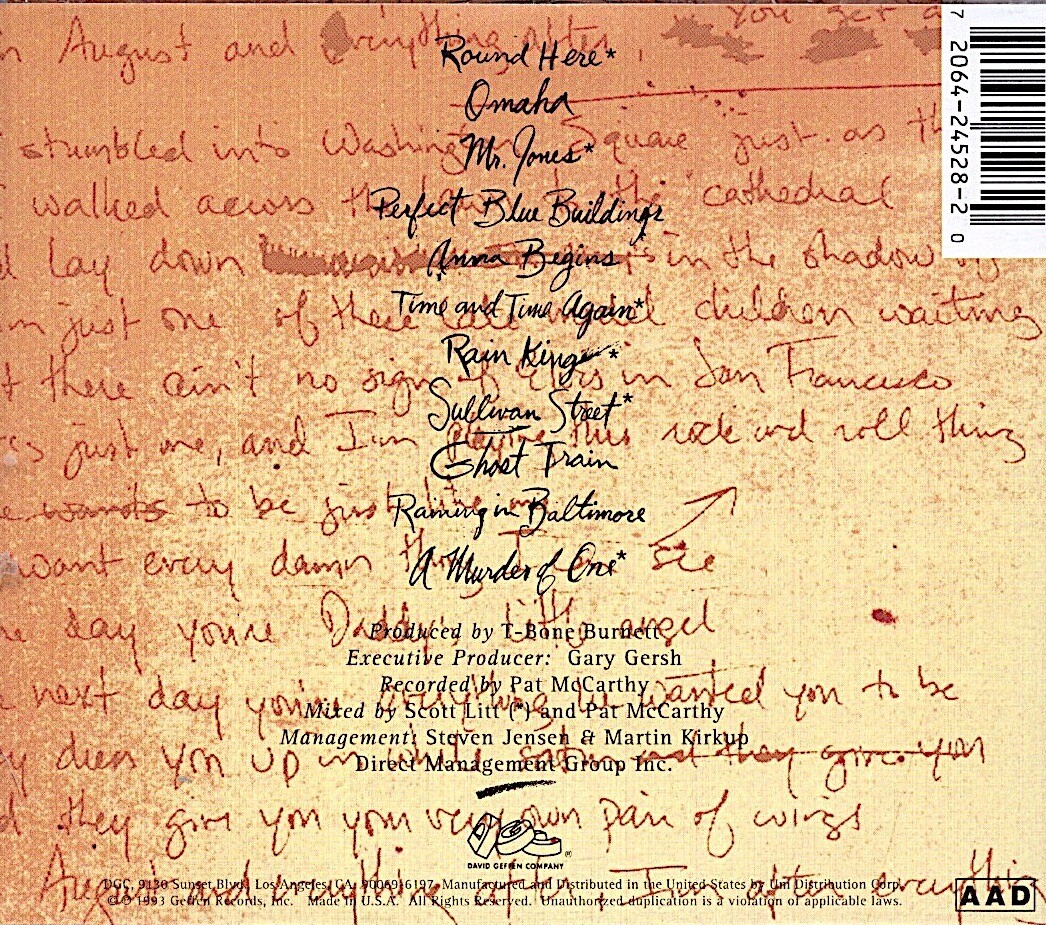 n August and Everything after, You get a
Round Here*
Omaha
stumbled into Washington Square just as th
Mr. Jones*
walked across the the cathedral
Perfect Blue Buildings
d lay down in the shadow
Anna Begins
Time and Time Again*
just one of these children waiting
Rain King*
t there ain't no sign of in San Francisco
Sullivan Street*
s just me, and I'm playing this rock and roll thing
Ghost Train
wants to be just like me
Raining in Baltimore
want every damn thing I see
A Murder of One*
day you're Daddy's little angel
Produced by T-Bone Burnett
Executive Producer: Gary Gersh
Recorded by Pat McCarthy
next day you're everything he wanted you to be
Mixed by Scott Litt (*) and Pat McCarthy
Management: Steven Jensen & Martin Kirkup
y dress you up in white satin and they give you
Direct Management Group Inc.
d they give you your very own pair of wings
DAVID GEFFEN COMPANY
August and everything after I'm after everything
DGC, 9130 Sunset Blvd., Los Angeles, CA. 90069-6197. Manufactured and Distributed in the United States by Uni Distribution Corp.
℗ © 1993 Geffen Records, Inc. Made in U.S.A. All Rights Reserved. Unauthorized duplication is a violation of applicable laws.
AAD
7 2064-24528-2 0